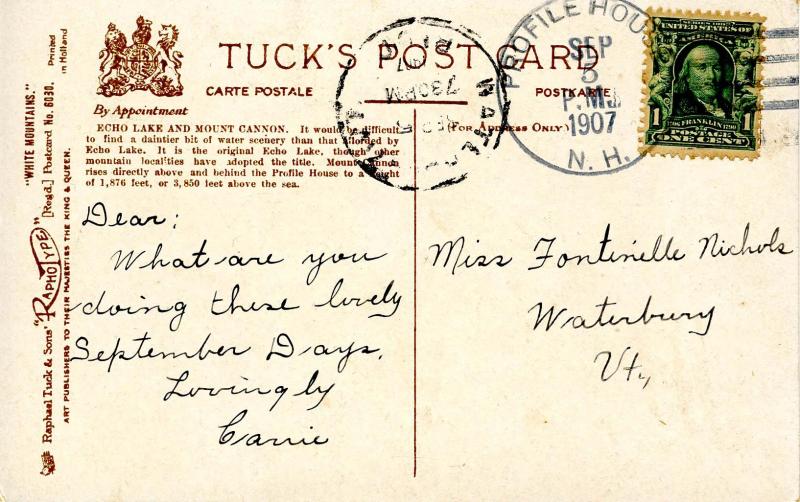 TUCK'S POST CARD
CARTE POSTALE
POSTKARTE
By Appointment
(For Address Only)
ECHO LAKE AND MOUNT CANNON. It would be difficult
to find a daintier bit of water scenery than that afforded by
Echo Lake. It is the original Echo Lake, though other
mountain localities have adopted the title. Mount Cannon
rises directly above and behind the Profile House to a height
of 1,876 feet, or 3,850 feet above the sea.
Dear:
What are you
doing these lovely
September Days.
Lovingly
Carrie
Miss Fontinelle Nichols
Waterbury
Vt,
PROFILE HOU
SEP
5
P.M
1907
N. H.
730PM
SERIES 1902
UNITED STATES OF
AMERICA
1706 FRANKLIN 1790
POSTAGE
1 ONE CENT 1
"WHITE MOUNTAINS."
Raphael Tuck & Sons' "RAPHOTYPE" [Regd.] Postcard No. 6030. Printed
in Holland
ART PUBLISHERS TO THEIR MAJESTIES THE KING & QUEEN.